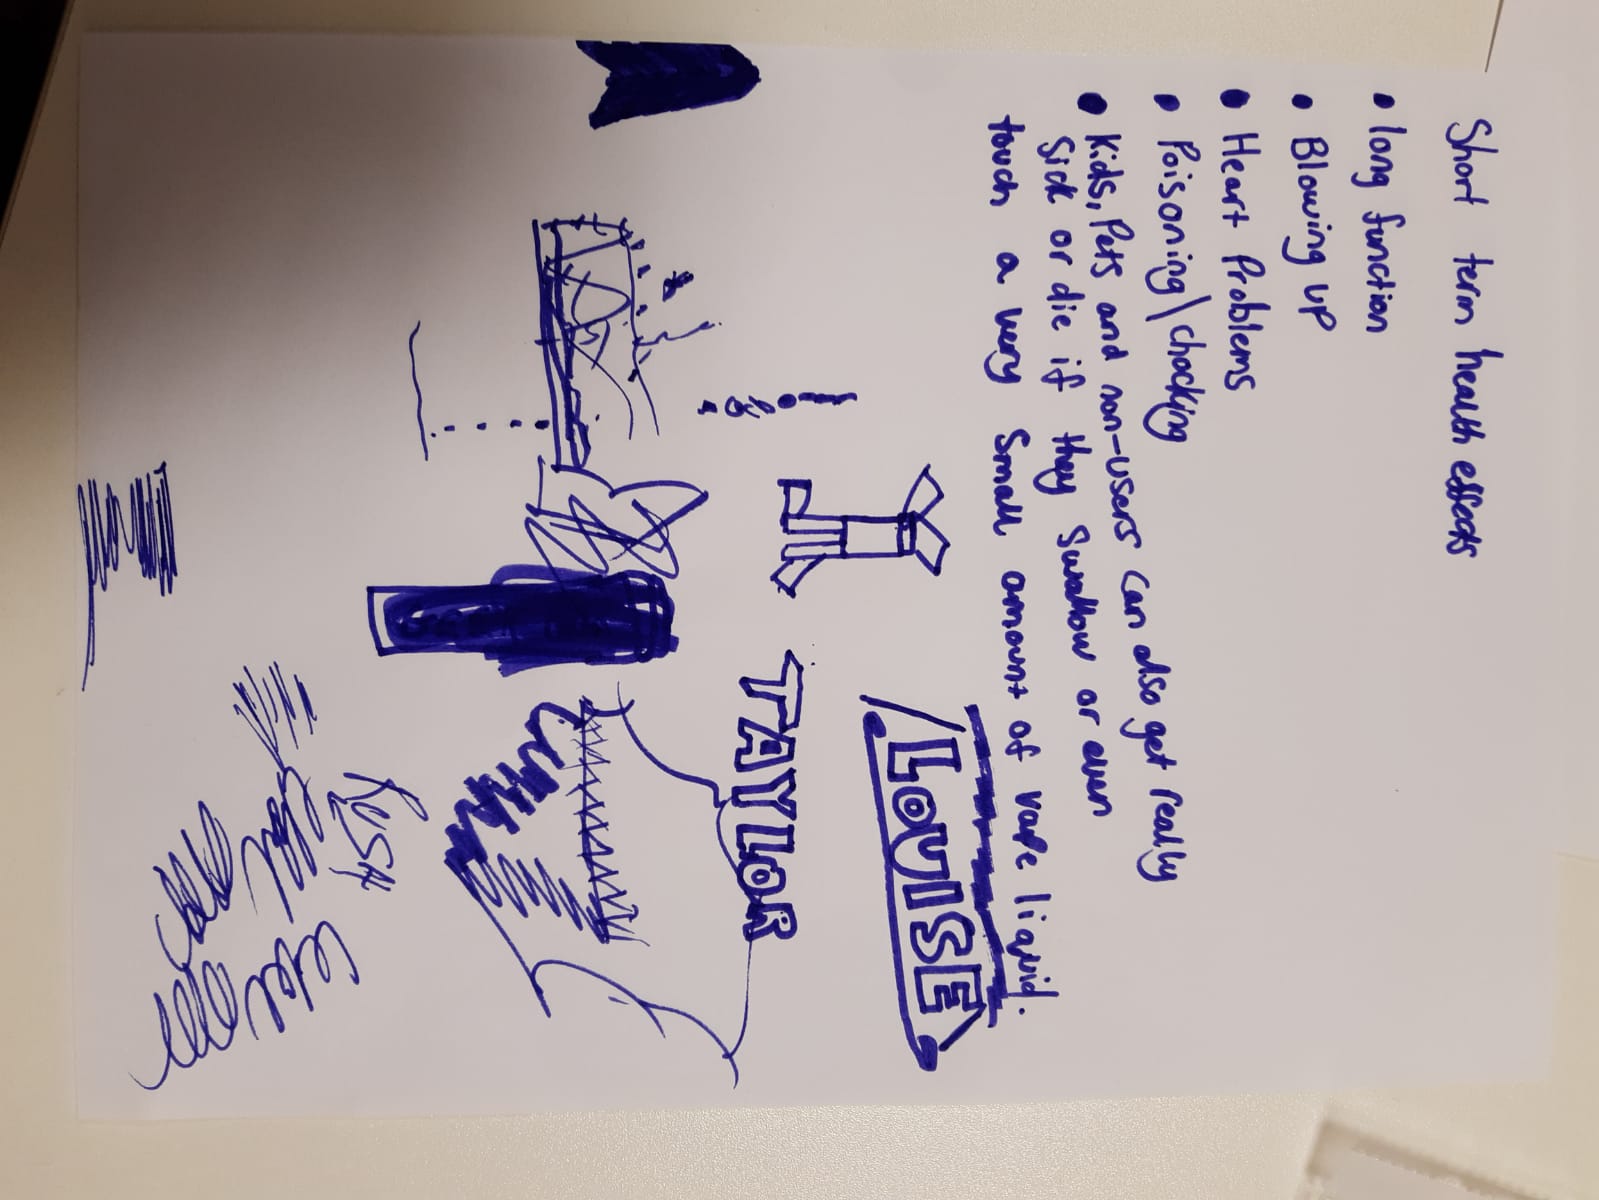 Short term health effects
• long function
• Blowing up
• Heart Problems
• Poisoning\chocking
• Kids, Pets and non-users can also get really
Sick or die if they Swallow or even
touch a very Small amount of vape liquid.
LOUISE
TAYLOR